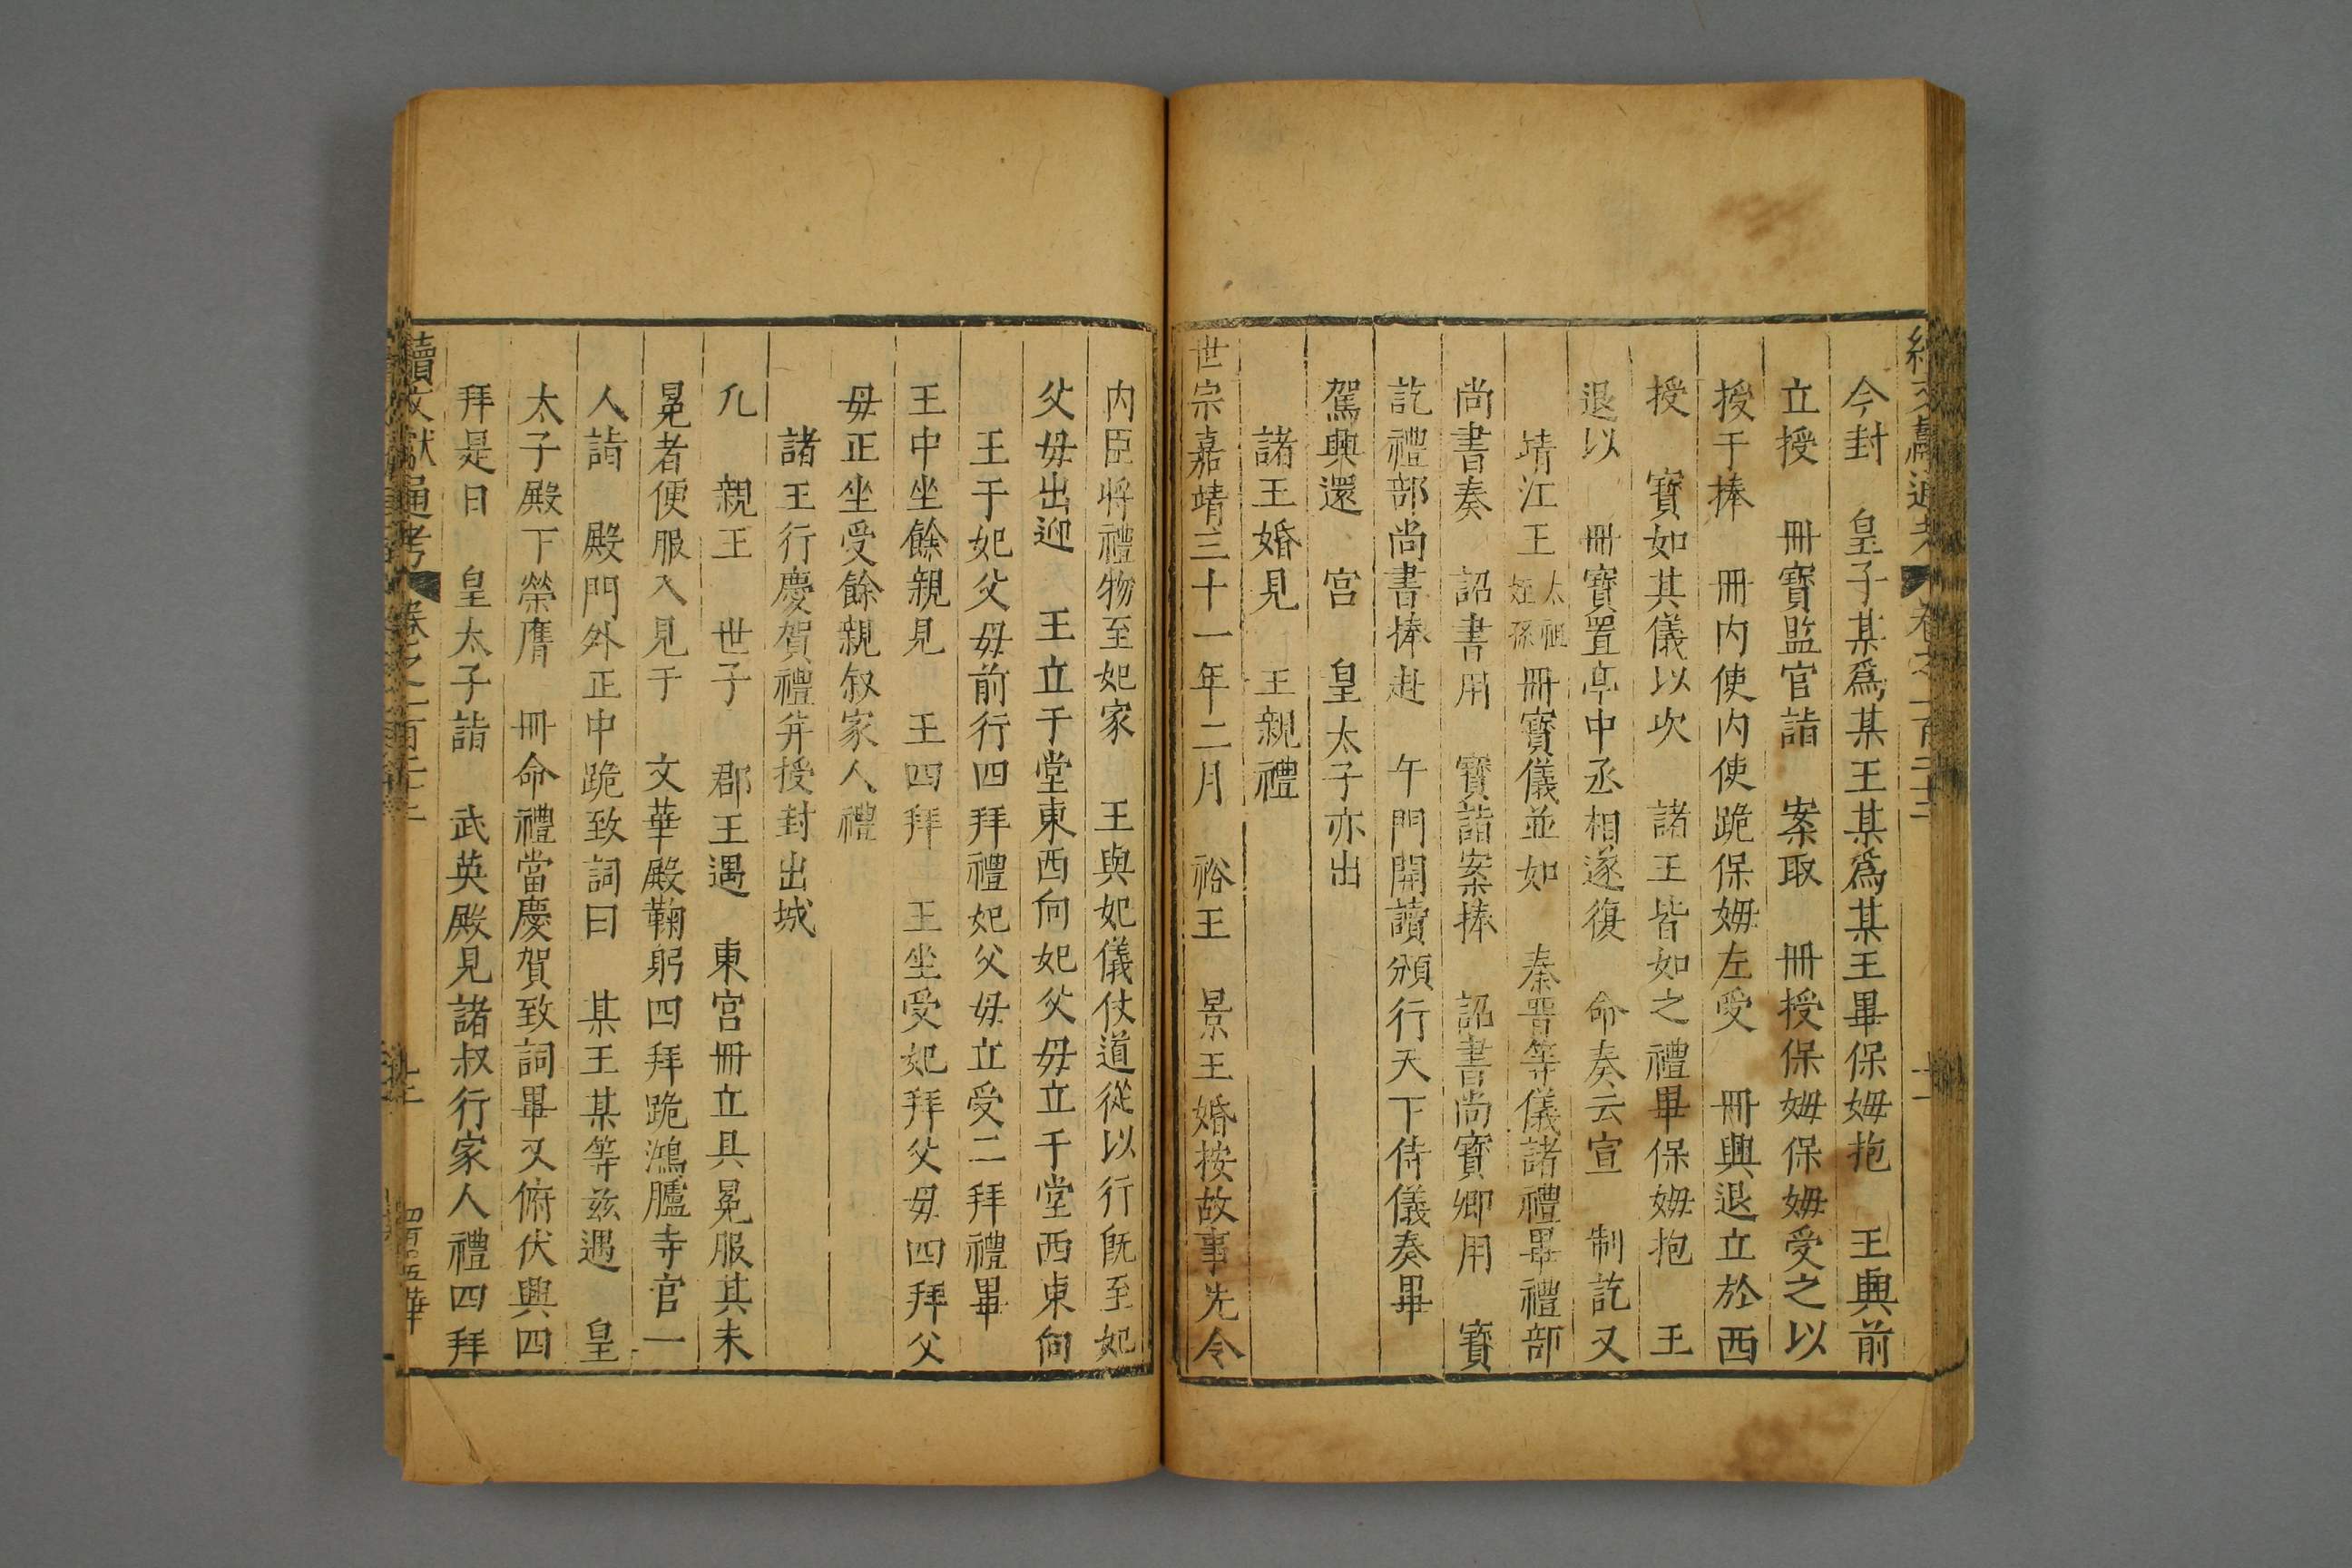 今封　皇子某爲某王某爲某王畢保姆抱　王興前
立授　冊寶監官詣　案取　冊授保姆保姆受之以
授于捧　冊内使内使跪保姆左受　冊興退立於西
授　寶如其儀以次　諸王皆如之禮畢保姆抱　王
退以　冊寶置亭中丞相遂復　命奏云宣　制訖又
靖江王太祖姪孫冊寶儀並如　秦晋等儀諸禮畢禮部
尚書奏　詔書用　寶詣案捧　詔書尚寶卿用　寶
訖禮部尚書捧赴　午門開讀頒行天下侍儀奏畢
駕興還　宮　皇太子亦出
諸王婚見　王親禮
世宗嘉靖三十一年二月　裕王　景王婚按故事先令
内臣將禮物至妃家　王與妃儀仗道從以行旣至妃
父毋出迎　王立于堂東西向妃父毋立于堂西東向
王于妃父毋前行四拜禮妃父毋立受二拜禮畢
王中坐餘親見　王四拜　王坐受妃拜父毋四拜父
毋正坐受餘親敘家人禮
諸王行慶賀禮并授封出城
凢　親王　世子　郡王遇　東宮冊立具冕服其未
冕者便服入見于　文華殿鞠躬四拜跪鴻臚寺官一
人詣　殿門外正中跪致詞曰　某王某等兹遇　皇
太子殿下榮膺　冊命禮當慶賀致詞畢又俯伏興四
拜是日　皇太子詣　武英殿見諸叔行家人禮四拜
續文獻通考　卷之一百二十二